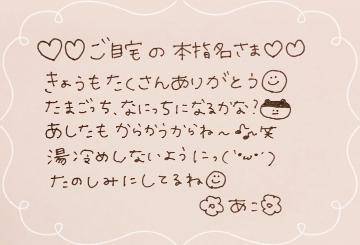 ♡♡ご自宅の本指名さま♡♡
きょうもたくさんありがとう☺
たまごっち、なにっちになるかな?
あしたもからかうからね〜♪笑
湯冷めしないようにっ(´・ω・`)
たのしみにしてるね☺
あこ